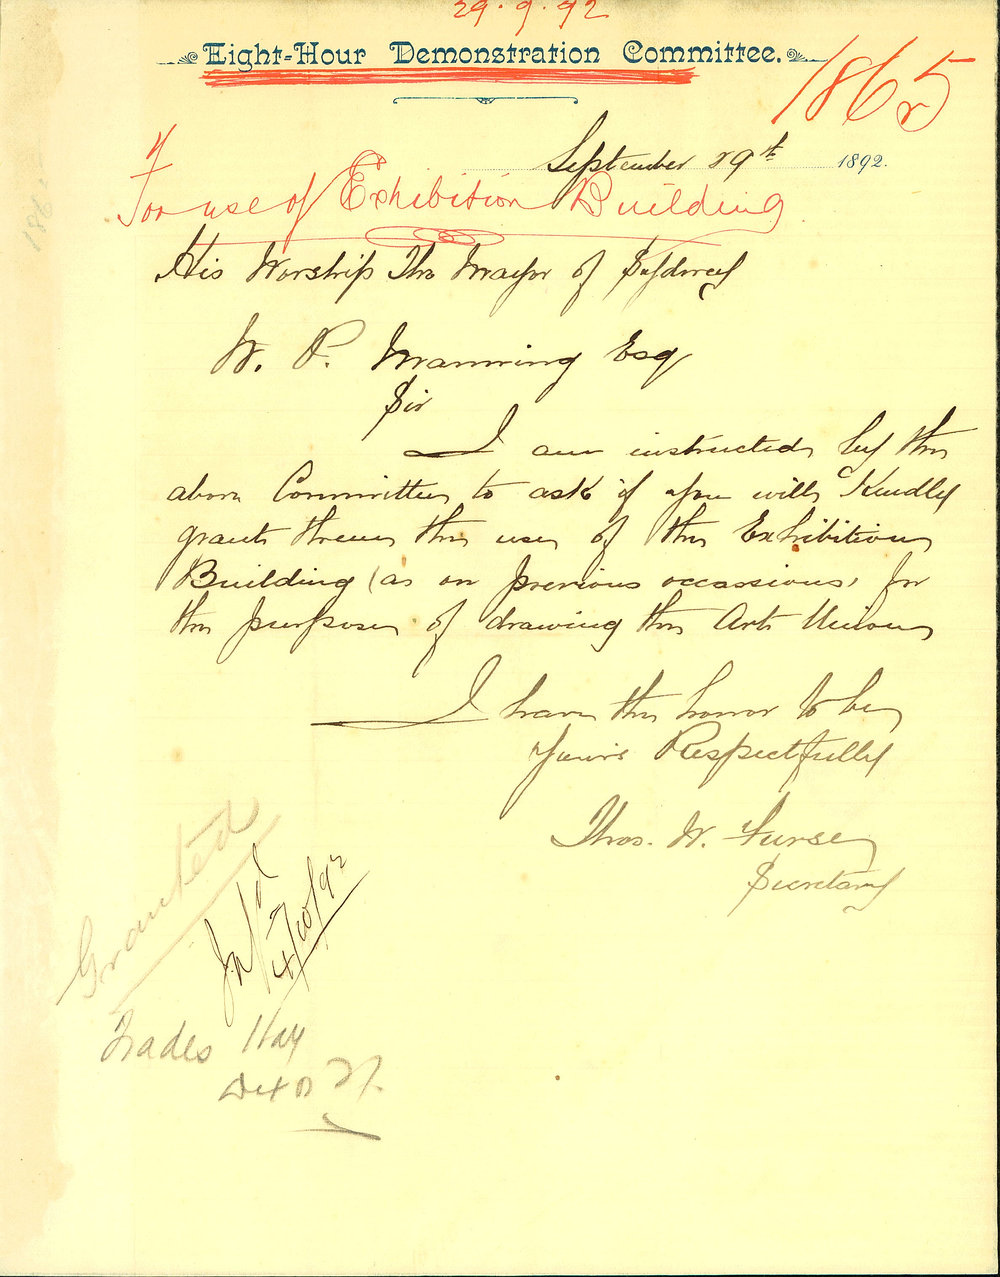 29.9.92
Eight-Hour Demonstration Committee.
1865
September 29th 1892.
For use of Exhibition Building
His Worship The Mayor of Sydney
W. P. Manning Esq
Sir
I am instructed by the
above Committee to ask if you will Kindly
grant them the use of the Exhibition
Building (as on previous occassions, for
the purpose of drawing the Art Union
I have the honor to be
Yours Respectfully
Thos. W. Furse
Secretary
Granted
Inf'd
4/10/92
Trades Hall
Dixon St.